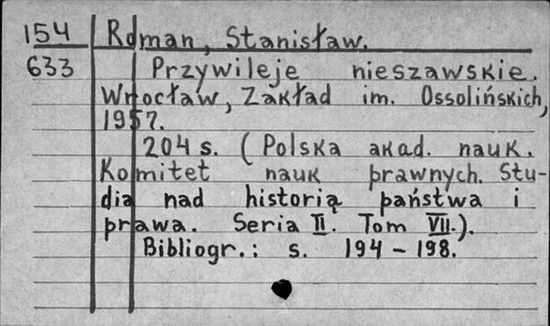 154 Roman, Stanisław.
633 Przywileje nieszawskie.
Wrocław, Zakład im. Ossolińskich,
1957.
204 s. (Polska akad. nauk.
Komitet nauk prawnych. Stu-
dia nad historią państwa i
prawa. Seria II. Tom VII.).
Bibliogr.: s. 194 – 198.